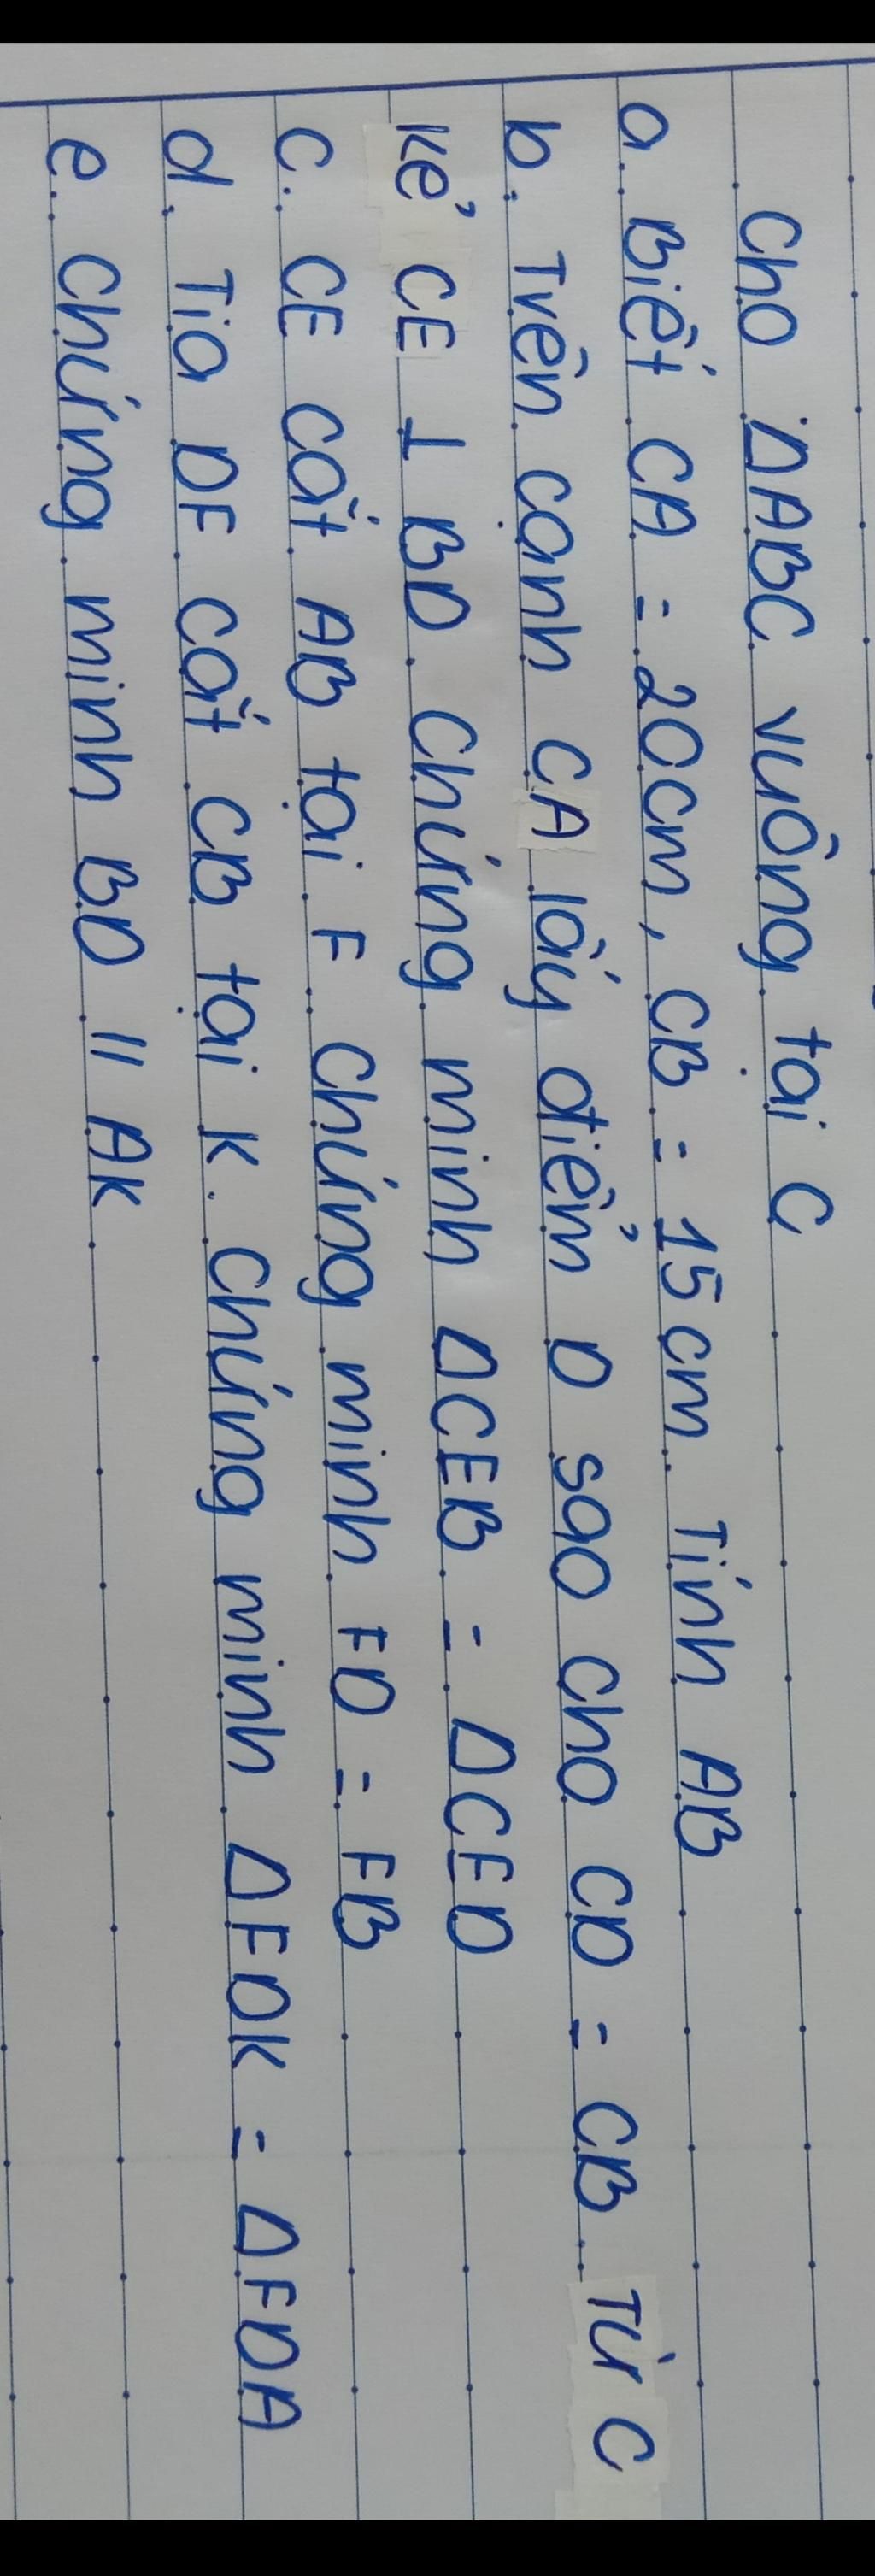 Cho ΔABC vuông tại C
a. Biết CA = 20cm, CB = 15cm. Tính AB
b. Trên cạnh CA lấy điểm D sao cho CD = CB. Từ C
kẻ CE ⊥ BD. Chứng minh ΔCEB = ΔCED
c. CE cắt AB tại F. Chứng minh FD = FB
d. Tia DF cắt CB tại K. Chứng minh ΔFDK = ΔFDA
e. Chứng minh BD // AK